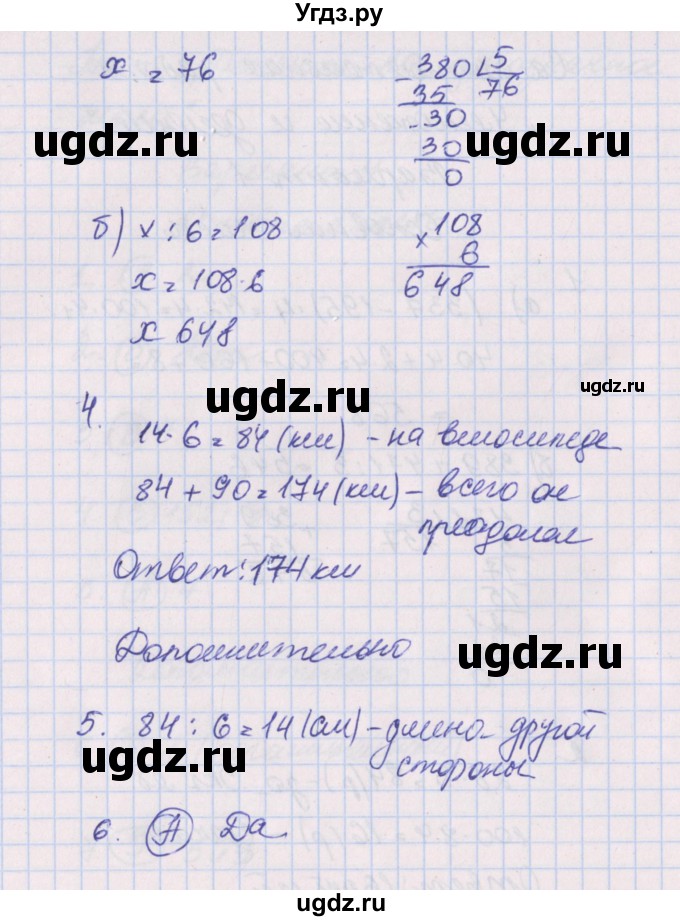 Угдз.ру
x = 76
- 380 5
35 76
- 30
30
0
ugdz.ru
ugdz.ru
б) x : 6 = 108
x = 108 · 6
x 648
108
× 6
648
ugdz.ru
ugdz.ru
4.
14 · 6 = 84 (км) - на велосипеде
84 + 90 = 174 (км) - всего он
преодолел
Ответ: 174 км
ugdz.ru
Дополнительно
ugdz.ru
5. 84 : 6 = 14 (см) - длина другой
стороны
ugdz.ru
ugdz.ru
6. А Да
ugdz.ru
ugdz.ru